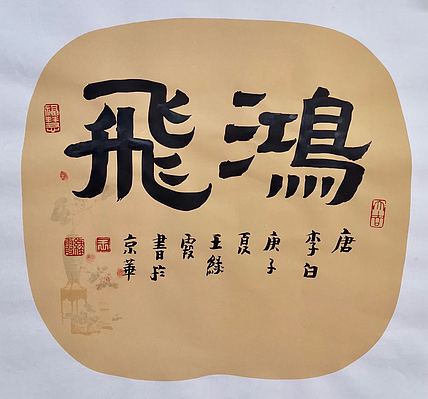 鴻飛
唐
李白
庚子
夏
王綠
霞
書於
京華